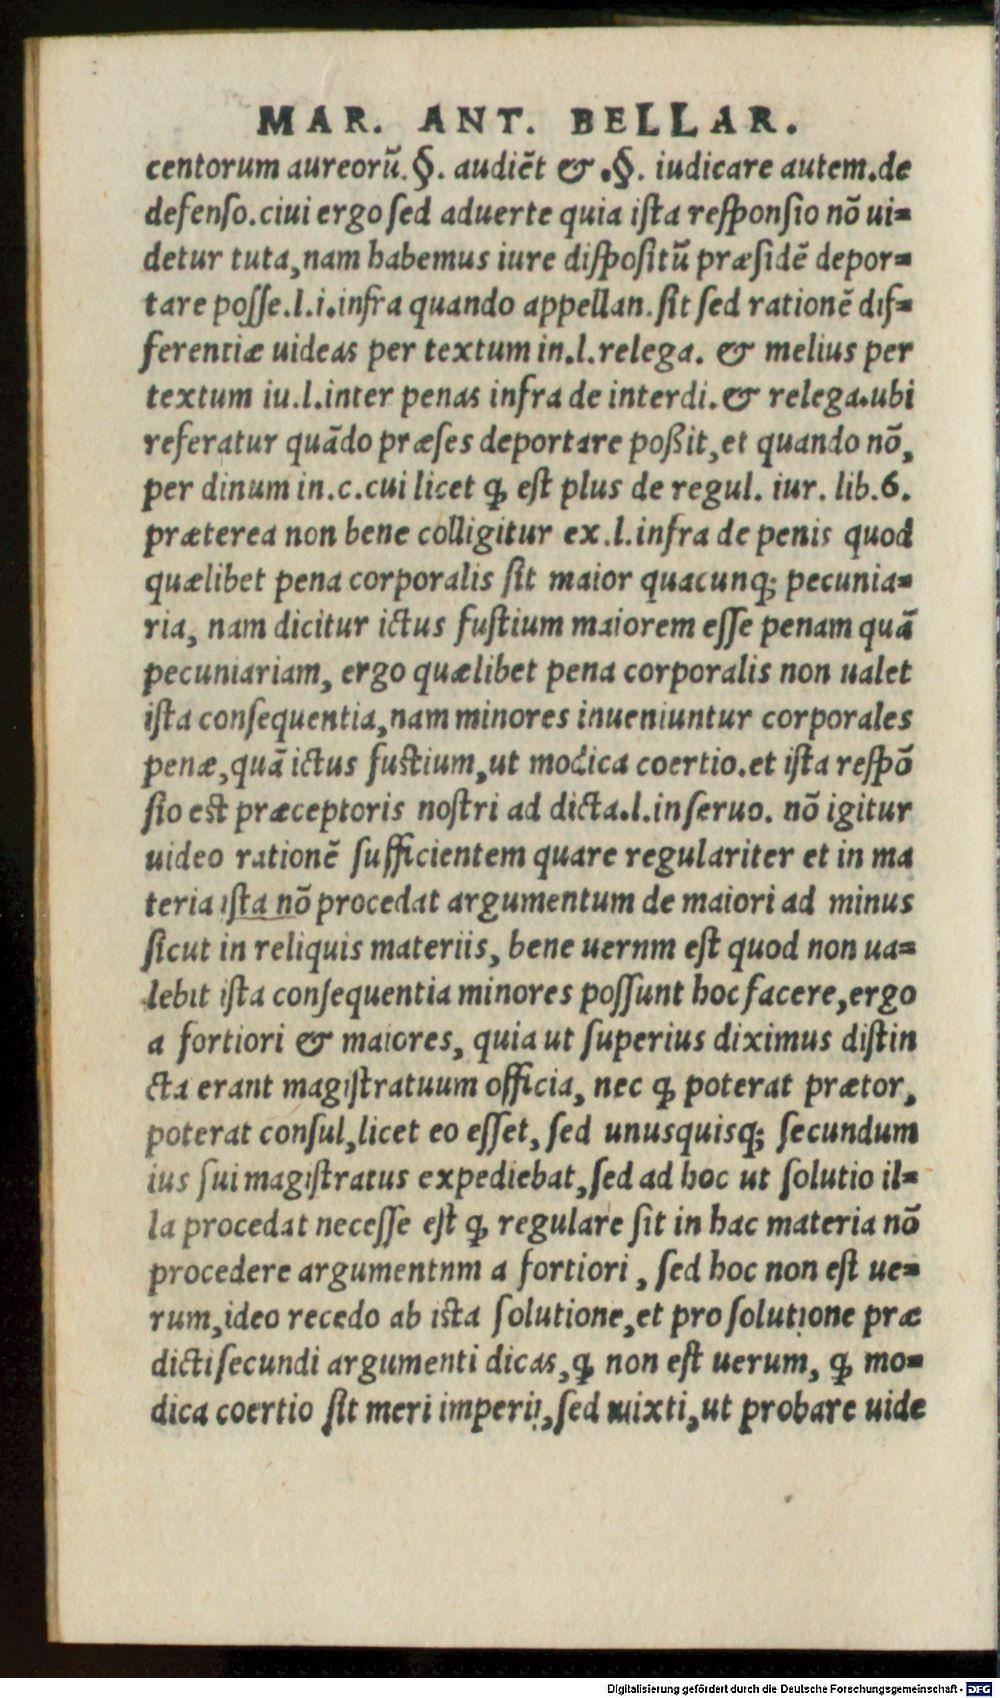 MAR. ANT. BELLAR.
centorum aureorũ.§. audiẽt & .§. iudicare autem.de
defenso.ciui ergo sed aduerte quia ista responsio nõ ui-
detur tuta,nam habemus iure dispositũ præsidẽ depor-
tare posse.l.i.infra quando appellan.sit sed rationẽ dif-
ferentiæ uideas per textum in.l.relega. & melius per
textum iu.l.inter penas infra de interdi.& relega.ubi
referatur quãdo præses deportare poßit,et quando nõ,
per dinum in.c.cui licet ꝙ est plus de regul. iur. lib.6.
præterea non bene colligitur ex.l.infra de penis quod
quælibet pena corporalis sit maior quacunq; pecunia-
ria, nam dicitur ictus fustium maiorem esse penam quã
pecuniariam, ergo quælibet pena corporalis non ualet
ista consequentia,nam minores inueniuntur corporales
penæ,quã ictus fustium,ut modica coertio.et ista respõ
sio est præceptoris nostri ad dicta.l.in seruo. nõ igitur
uideo rationẽ sufficientem quare regulariter et in ma
teria ista nõ procedat argumentum de maiori ad minus
sicut in reliquis materiis, bene uernm est quod non ua-
lebit ista consequentia minores possunt hoc facere,ergo
a fortiori & maiores, quia ut superius diximus distin
cta erant magistratuum officia, nec ꝙ poterat prætor,
poterat consul,licet eo esset, sed unusquisq; secundum
ius sui magistratus expediebat,sed ad hoc ut solutio il-
la procedat necesse est ꝙ regulare sit in hac materia nõ
procedere argumentnm a fortiori , sed hoc non est ue-
rum,ideo recedo ab ista solutione,et pro solutione præ
dicti secundi argumenti dicas,ꝙ non est uerum, ꝙ mo-
dica coertio sit meri imperii,sed mixti,ut probare uide
Digitalisierung gefördert durch die Deutsche Forschungsgemeinschaft - DFG